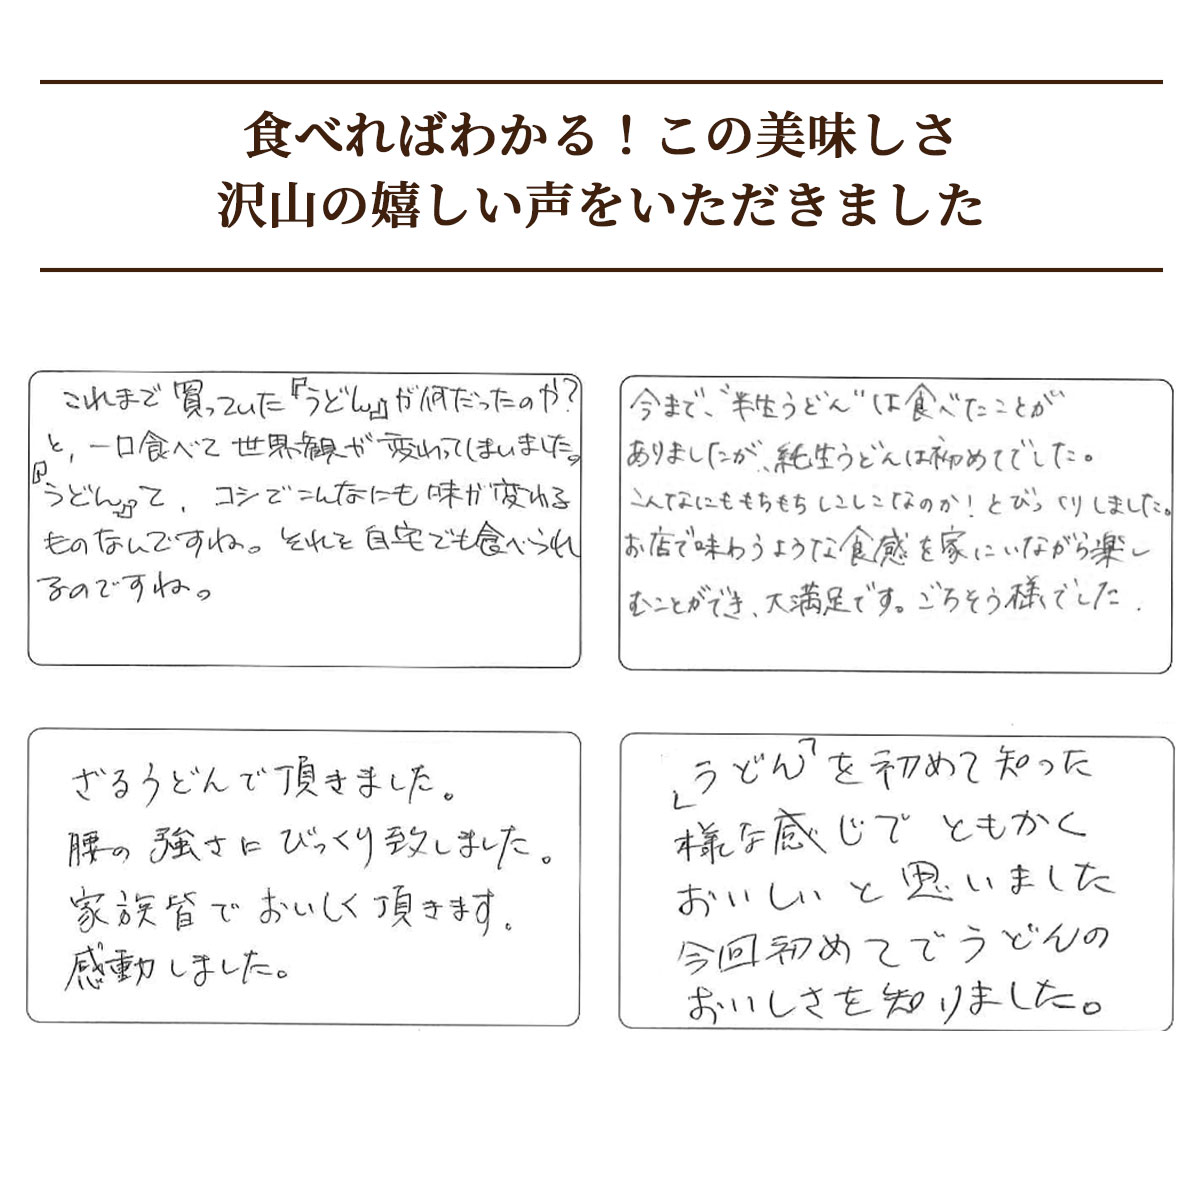 食べればわかる！この美味しさ
沢山の嬉しい声をいただきました
これまで買っていた『うどん』が何だったのか？
と、一口食べて世界観が変わってしまいました。
『うどん』って、コシでこんなにも味が変わる
ものなんですね。それを自宅でも食べられ
るのですね。
今まで、“半生うどん”は食べたことが
ありましたが、純生うどんは初めてでした。
こんなにももちもちしこしこなのか！とびっくりしました。
お店で味わうような食感を家にいながら楽し
むことができ、大満足です。ごちそう様でした．
ざるうどんで頂きました。
腰の強さにびっくり致しました。
家族皆でおいしく頂きます。
感動しました。
「うどん」を初めて知った
様な感じでともかく
おいしいと思いました
今回初めてでうどんの
おいしさを知りました。